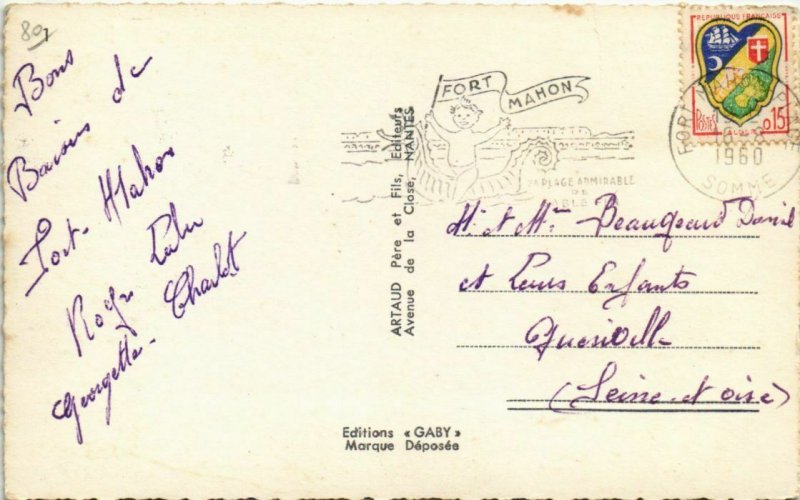 80
Bons
Baisers de
Fort-Mahon
Roger
Georgette - Charlot
ARTAUD Père et Fils, Editeurs
Avenue de la Close, NANTES
Editions « GABY »
Marque Déposée
FORT MAHON
SA PLAGE ADMIRABLE
DE
REPUBLIQUE FRANÇAISE
POSTES
0.15
1960
SOMME
Mr et Mme Beaugeard Daniel
et Leurs Enfants
(Seine et Oise)